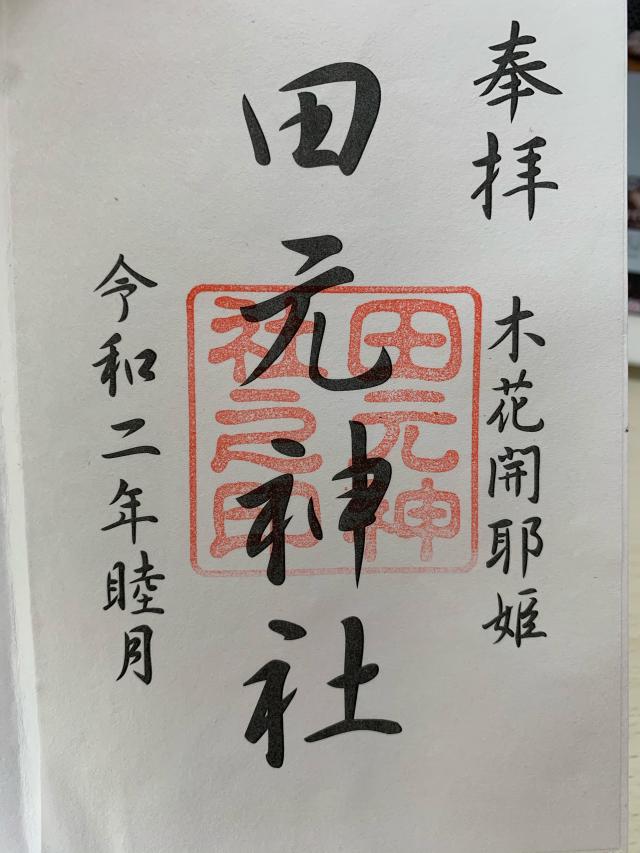 奉拝　木花開耶姫
田元神社
田元神
社之印
令和二年睦月